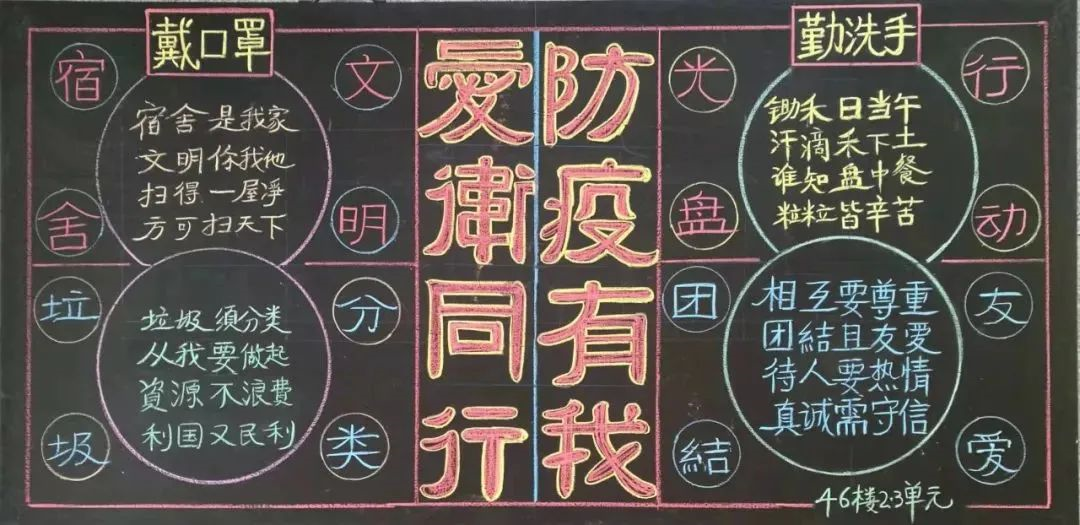 戴口罩
宿舍
文明
宿舍是我家
文明你我他
扫得一屋净
方可扫天下
垃圾
分类
垃圾須分类
从我要做起
資源不浪費
利国又民利
防疫有我
愛衛同行
勤洗手
光盘
行动
锄禾日当午
汗滴禾下土
谁知盘中餐
粒粒皆辛苦
团結
友爱
相互要尊重
团結且友爱
待人要热情
真诚需守信
46楼2·3单元